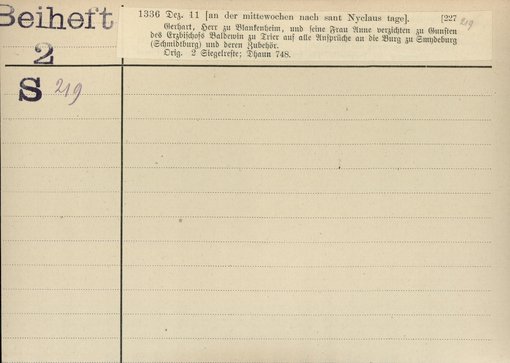 Beiheft
2
S 219
1336 Dez. 11 [an der mittewochen nach sant Nyclaus tage]. [227 219
Gerhart, Herr zu Blankenheim, und seine Frau Anne verzichten zu Gunsten
des Erzbischofs Baldewin zu Trier auf alle Ansprüche an die Burg zu Smydeburg
(Schmidtburg) und deren Zubehör.
Orig. 2 Siegelreste; Dhaun 748.